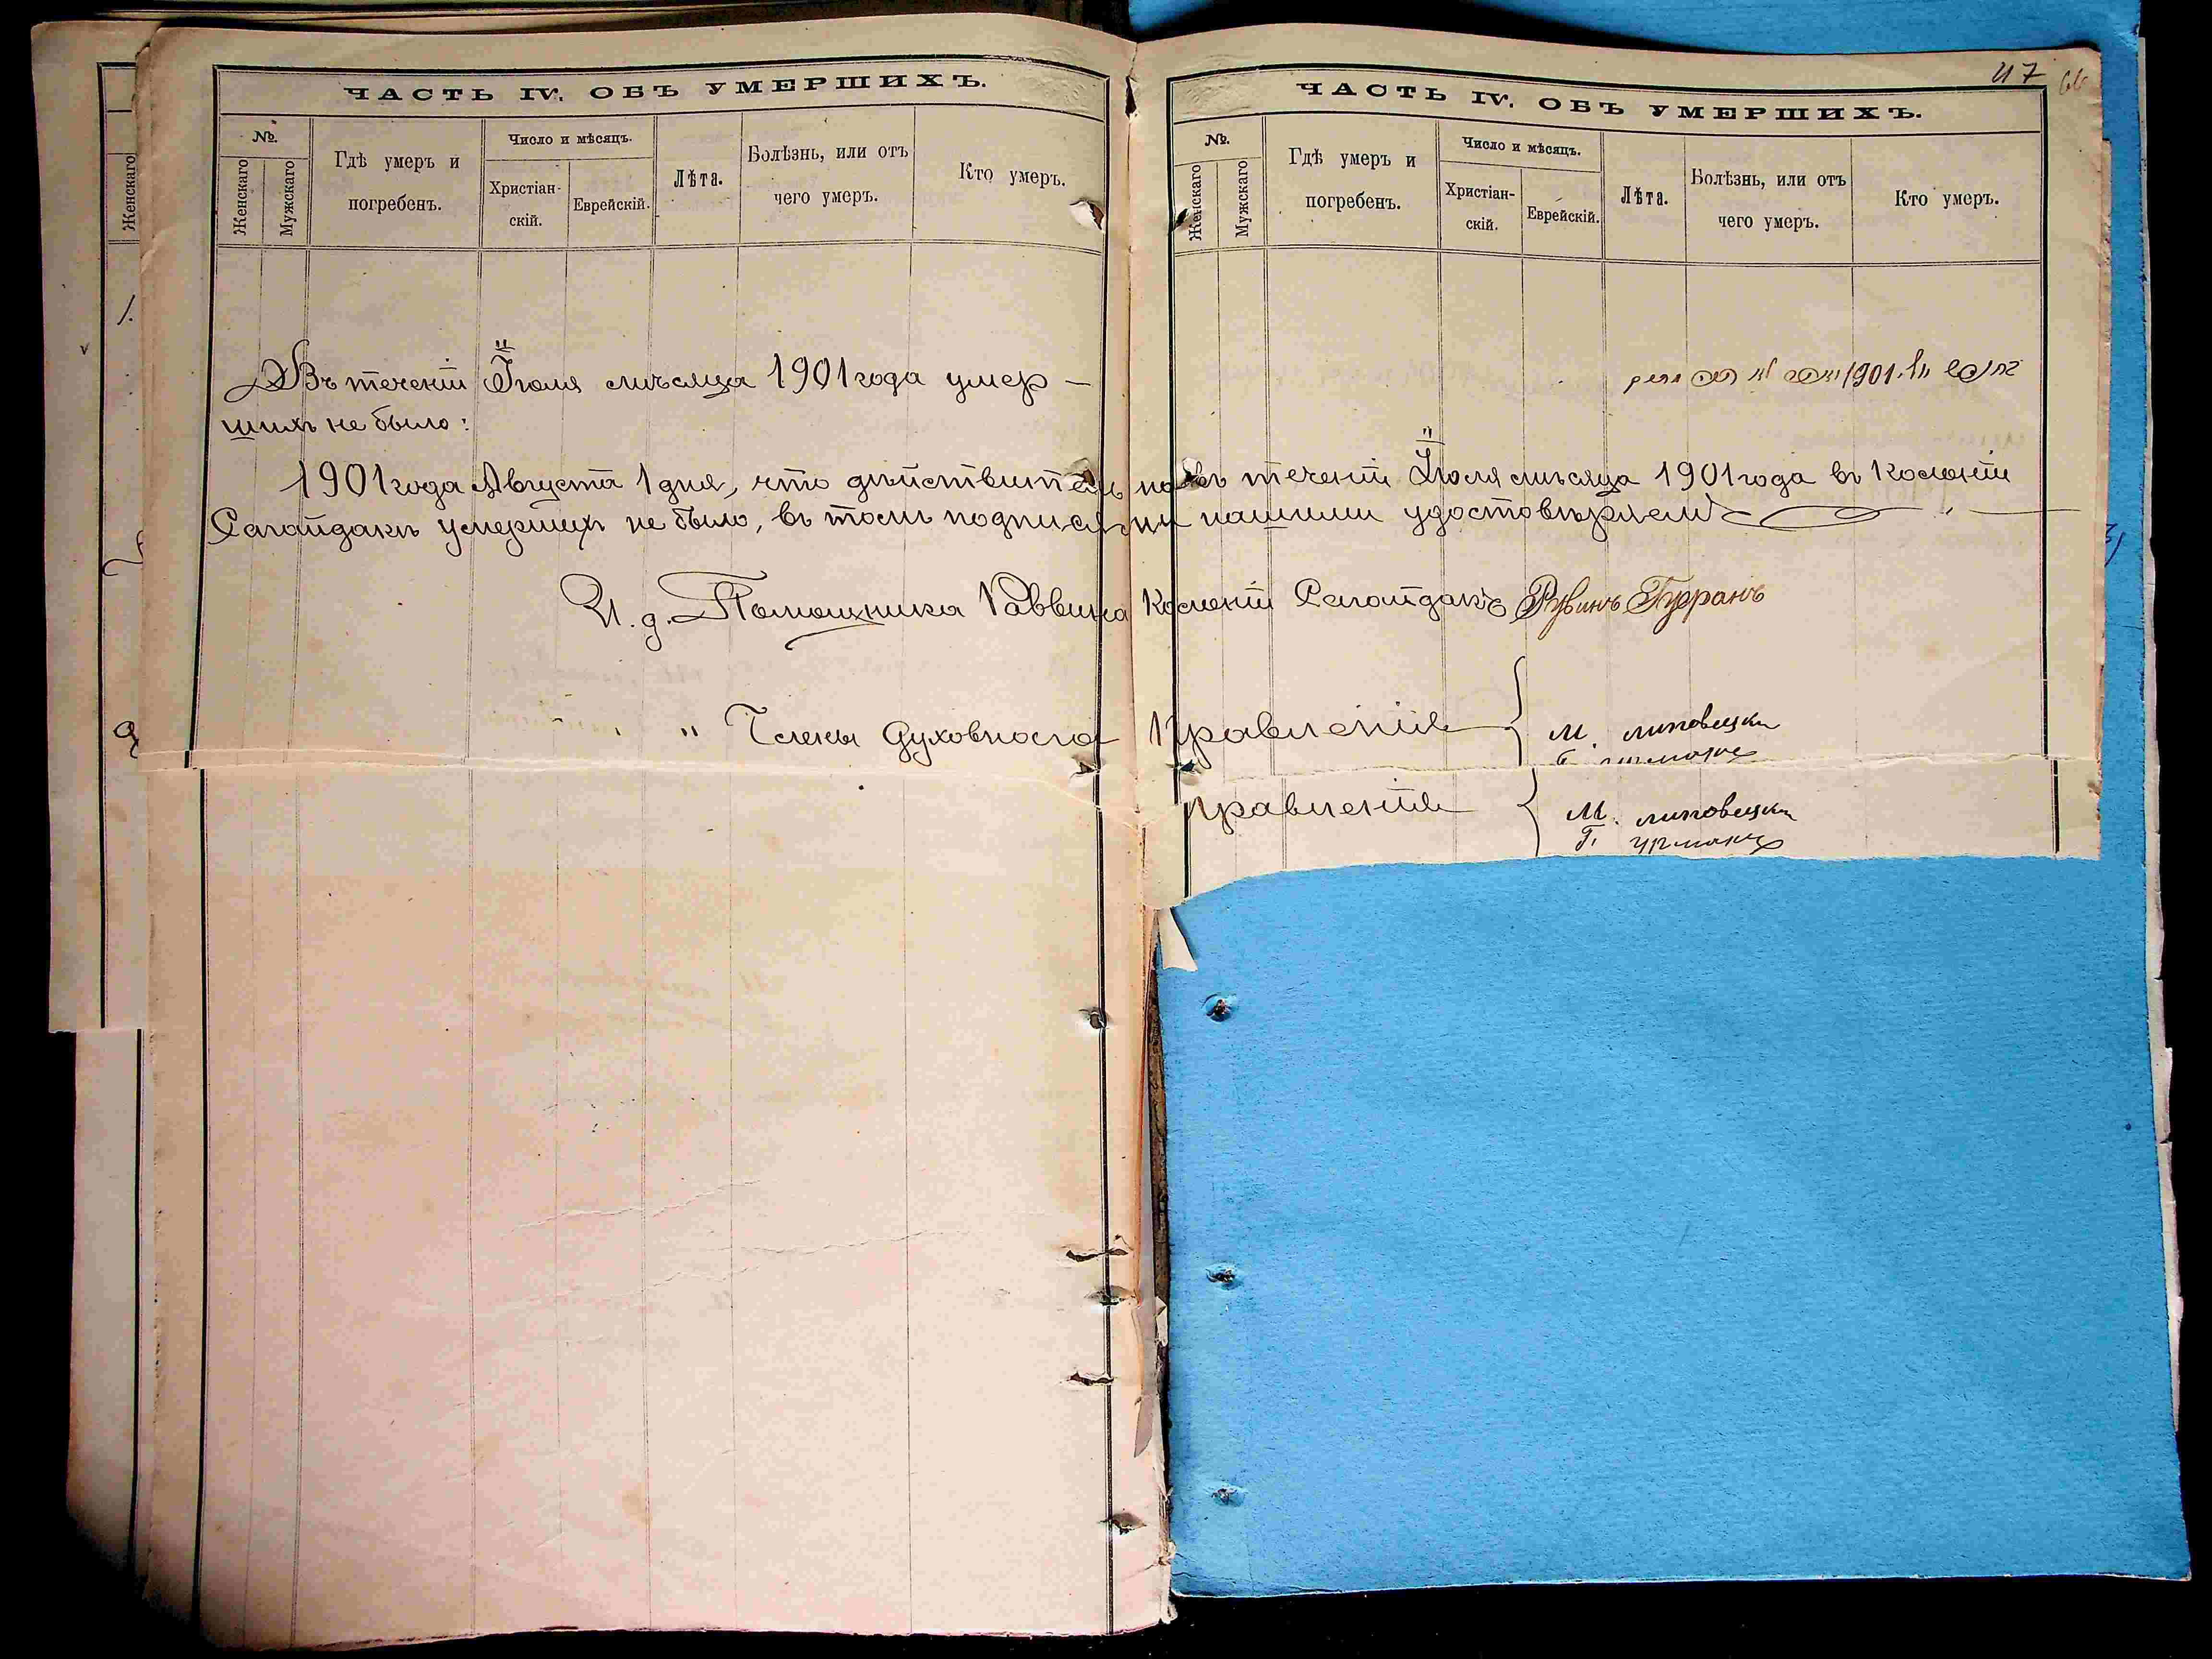 ЧАСТЬ IV. ОБЪ УМЕРШИХЪ.
№.
Женскаго
Мужскаго
Гдѣ умеръ и погребенъ.
Число и мѣсяцъ.
Христіан-
скій.
Еврейскій.
Лѣта.
Болѣзнь, или отъ
чего умеръ.
Кто умеръ.
Въ теченіи Іюля мѣсяца 1901 года умер-
шихъ не было:
47
66
ЧАСТЬ IV. ОБЪ УМЕРШИХЪ.
№.
Женскаго
Мужскаго
Гдѣ умеръ и
погребенъ.
Число и мѣсяцъ.
Христіан-
скій.
Еврейскій.
Лѣта.
Болѣзнь, или отъ
чего умеръ.
Кто умеръ.
1901
1901 года Августа 1 дня, что дѣйствительно въ теченіи Іюля мѣсяца 1901 года въ Колоніи
Сагайдакъ умершихъ не было, въ томъ подписями нашими удостовѣряемъ
И. д. Помощника Раввина Колоніи Сагайдакъ Рувинъ
" Члены Духовнаго Правленія { М. липовецки
Правленія { М. липовецки
Г.
Женскаго
1.